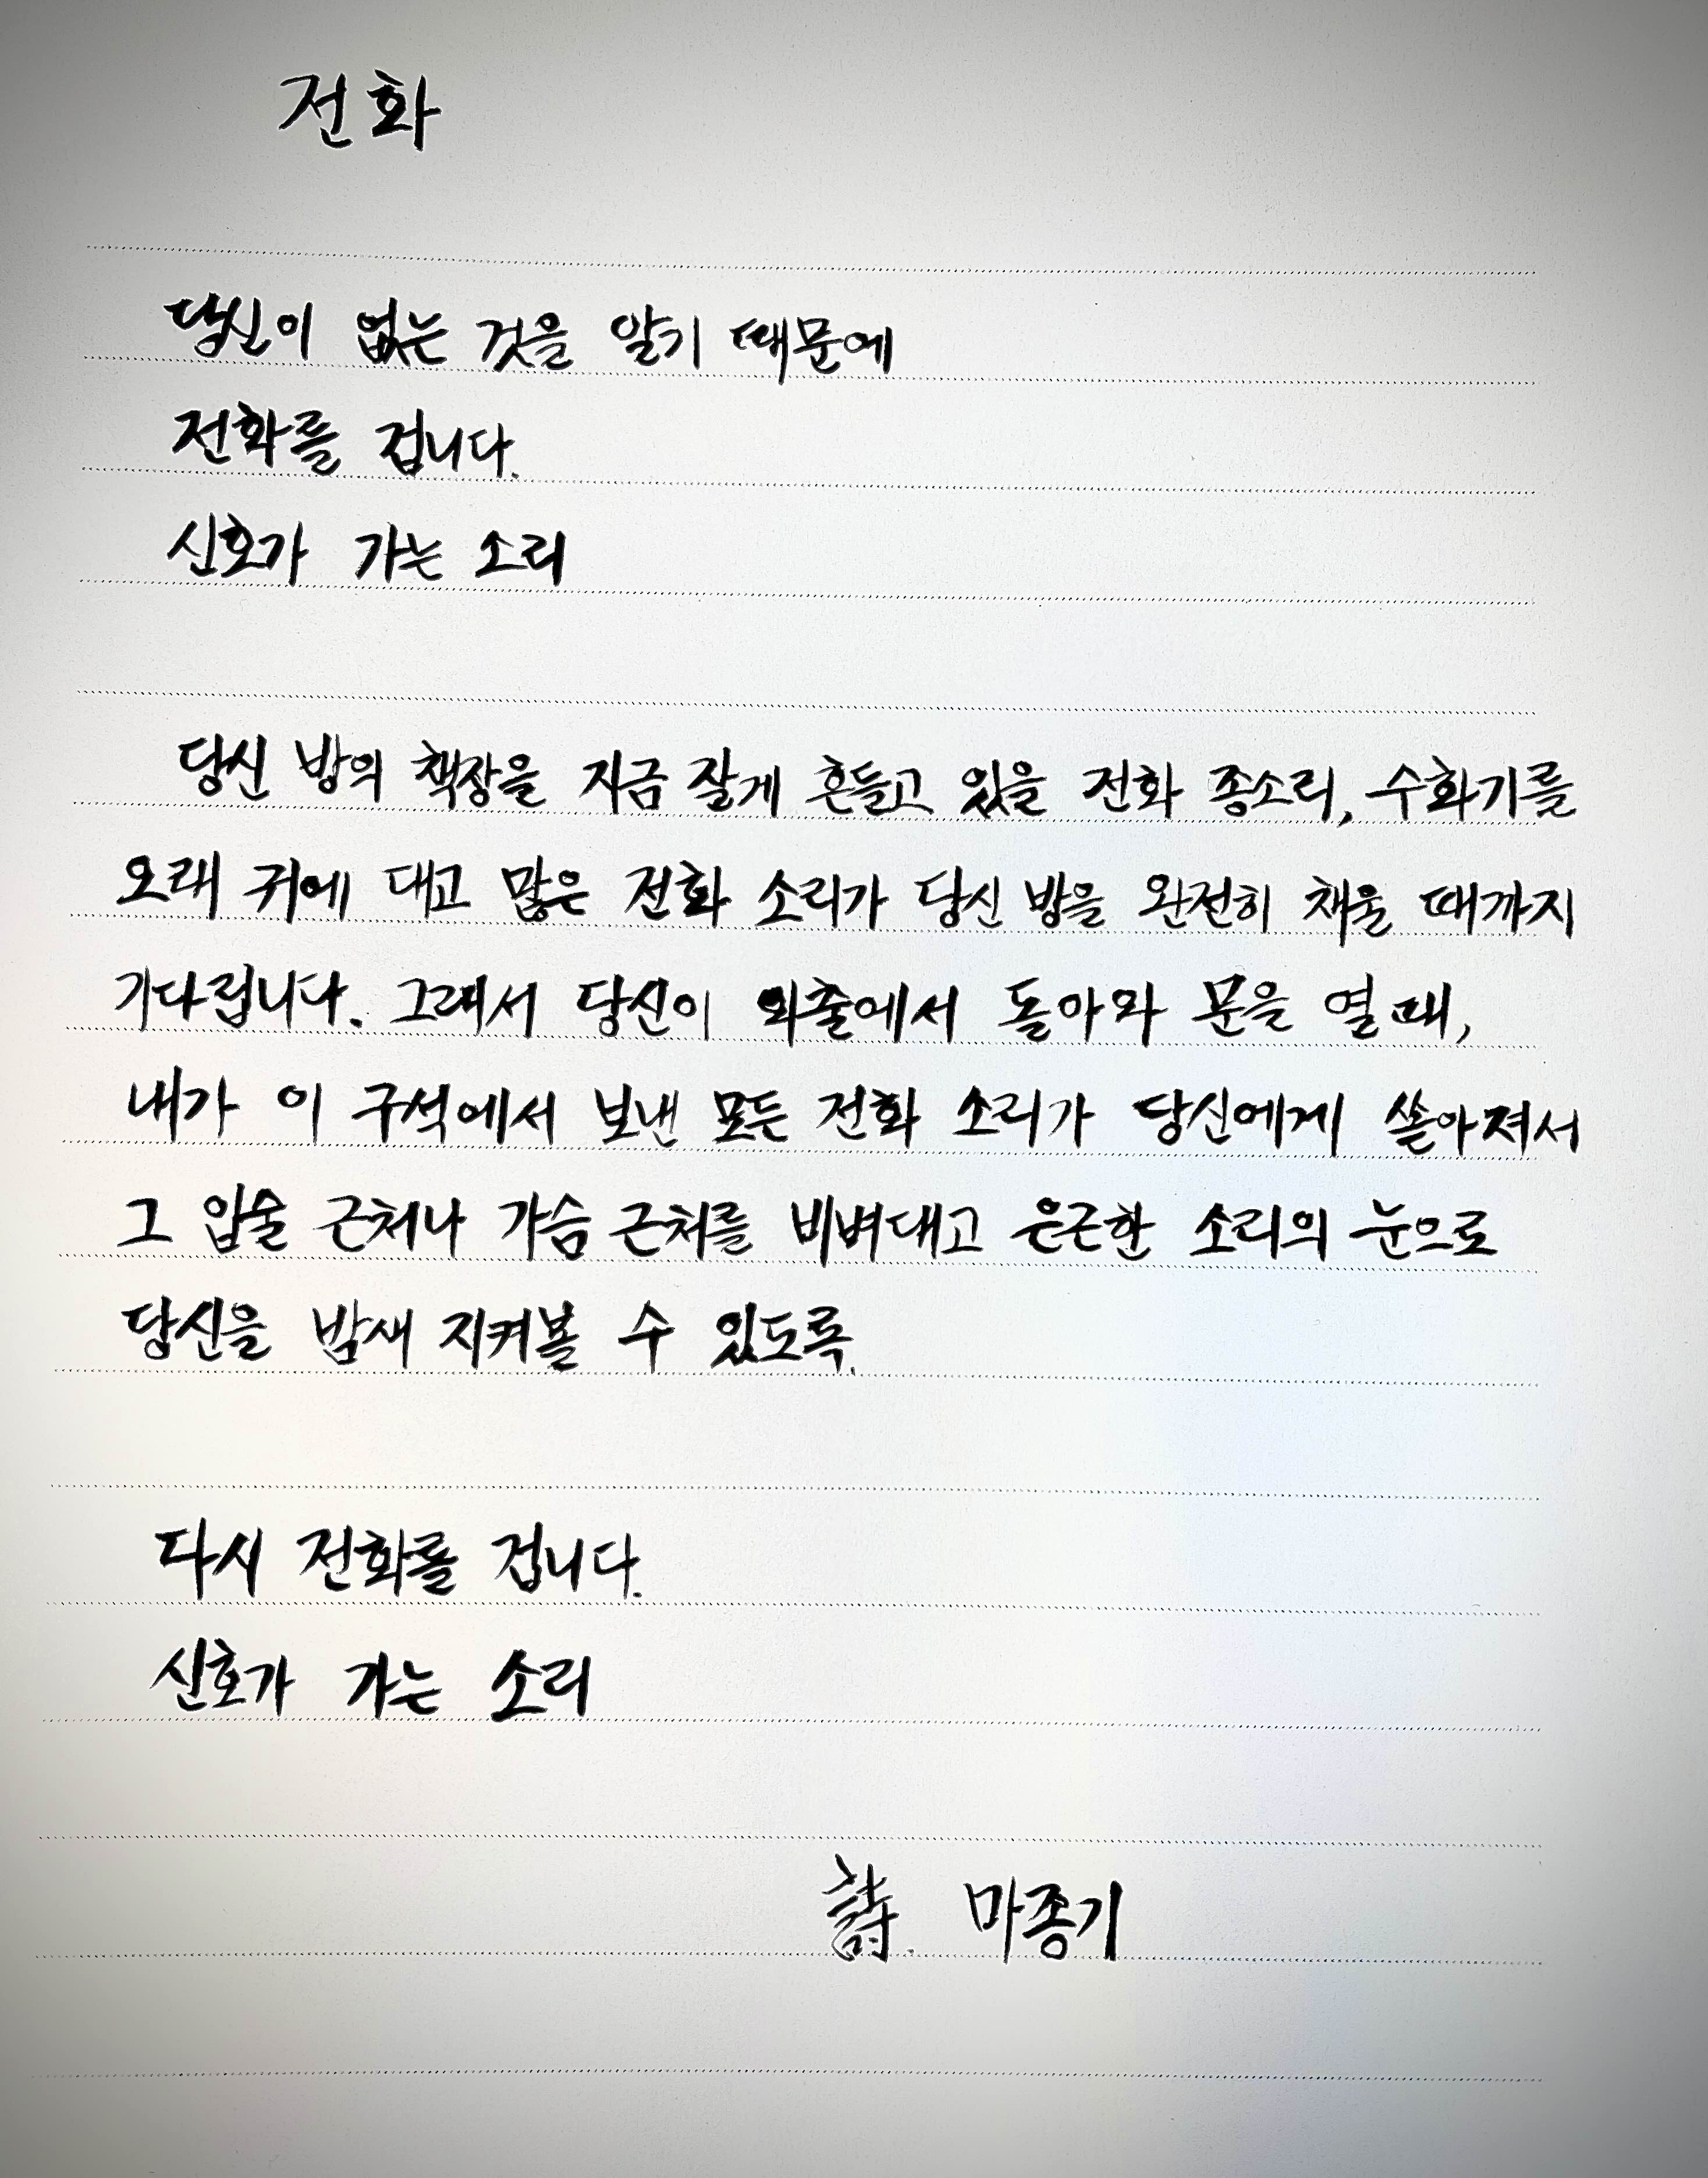 전화
당신이 없는 것을 알기 때문에
전화를 겁니다.
신호가 가는 소리
당신 방의 책장을 지금 잘게 흔들고 있을 전화 종소리, 수화기를
오래 귀에 대고 많은 전화 소리가 당신 방을 완전히 채울 때까지
기다립니다. 그래서 당신이 외출에서 돌아와 문을 열 때,
내가 이 구석에서 보낸 모든 전화 소리가 당신에게 쏟아져서
그 입술 근처나 가슴 근처를 비벼대고 은근한 소리의 눈으로
당신을 밤새 지켜볼 수 있도록.
다시 전화를 겁니다.
신호가 가는 소리
詩. 마종기